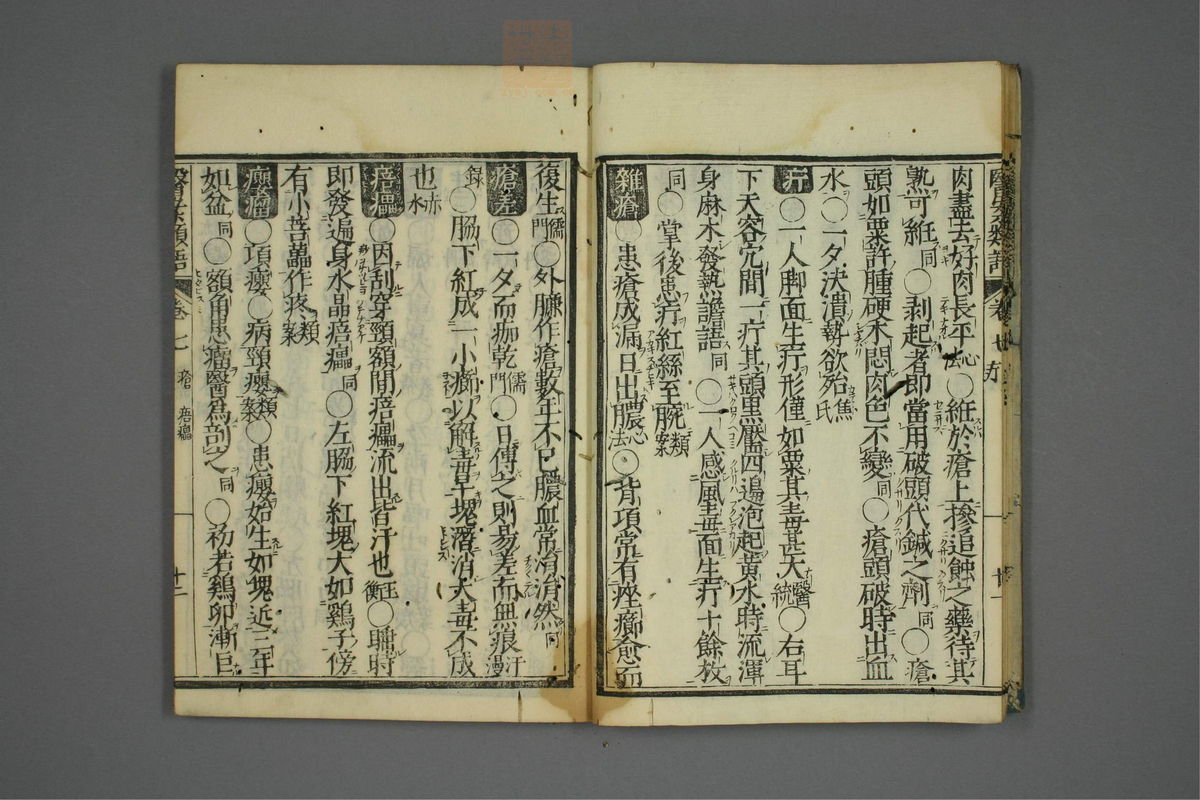 肉盡去好肉長平心法〇紙於瘡上摻追蝕之藥待其
熟可紙同〇剥起者即當用破頭代鍼之劑同〇瘡
頭如粟許腫硬水悶肉色不變同〇瘡頭破時出血
水〇一夕決潰勢欲殆焦氏
疔〇一人脚面生疔形僅如粟其毒甚大醫統〇右耳
下天容穴間一疔其頭黒壓四邊泡起黄水時流渾
身麻木發熱譫語同〇一人感風毒面生疔十餘枚
同〇掌後患疔紅絲至腕類案
雜瘡〇患瘡成漏日出膿心法〇背項常有痤癤愈而
復生儒門〇外臁作瘡數年不已膿血常涓涓然同
瘡差〇一夕而痂乾儒門〇日傅之則易差而無痕汗漫
録〇脇下紅成一小癤以解毒早塊漸消大毒不成
也赤水
痦㿔〇因刮穿頸額間痦㿔流出皆汗也玉衡〇疇時
即發遍身水晶痦㿔同〇左脇下紅塊大如鷄子傍
有小菩蕌作疼類案
癭瘤〇項癭〇病頸癭類案〇患癭始生如塊近三年
如盆同〇額角患瘤醫爲剖之同〇初若鷄卵漸巨
卷七 瘡 痦㿔 十二